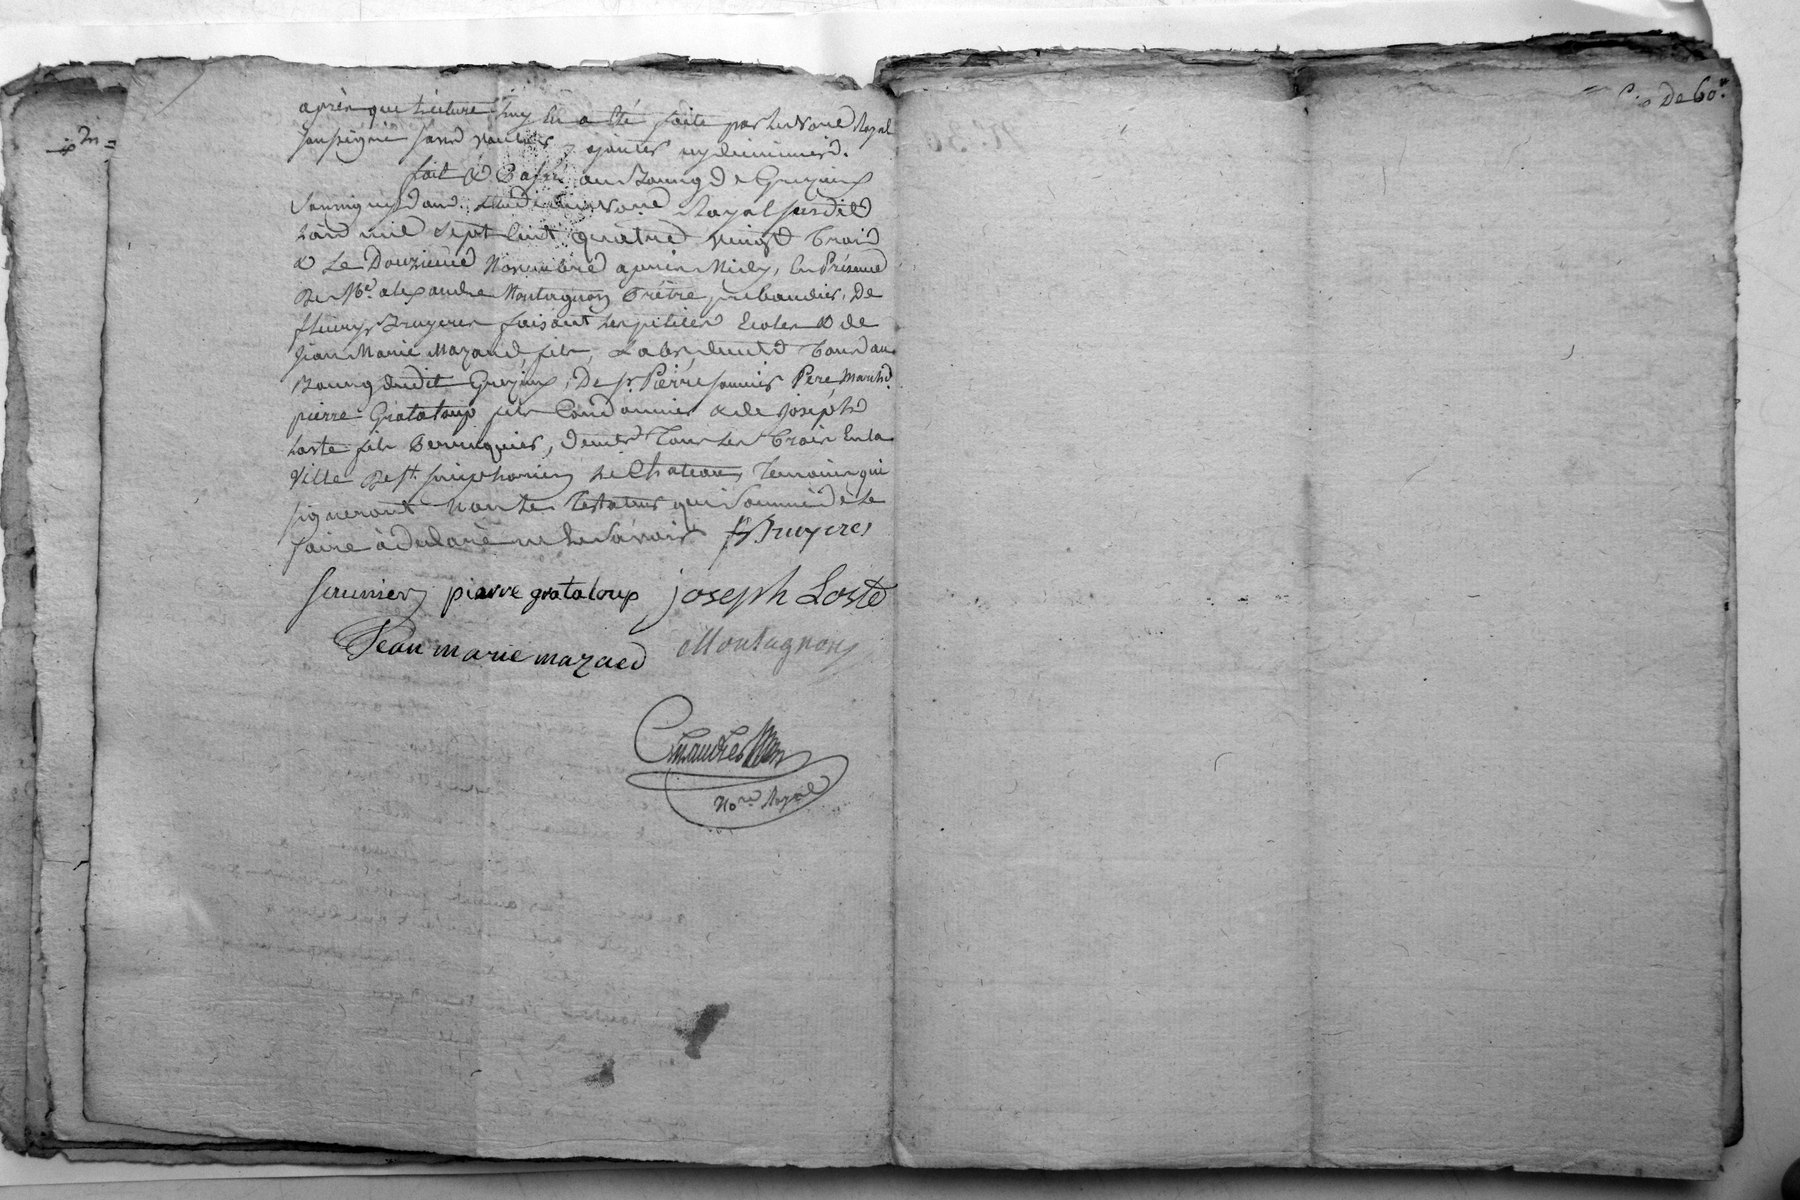 après que lecture luy en a été faite par le No.re Royal
soussigné sans vouloir y ajouter ny diminuer.
fait & Passé au Bourg de Grezieux
Royal susdit
L'and mil sept cent quatre vingt Trois
& le Douzieme Novembre après Midy, En Présence
De M.re alexandre Montagnon Prêtre prebandier, De
fleury Bruyeres faisant les petites Ecoles & de
Jean Marie Mazard fils, Tous au
Bourg dudit Grezieux, De s.r Pierre saunier Pere March.d
pierre Grataloup fils Cordonnier & de joseph
Loste fils Perruquier, demt Tous les Trois En la
Ville de s.t simphorien le Chateau, Temoins qui
signeront non le Testateur qui Sommé de le
faire à déclaré ne le sàvoir f Bruyeres
saunier pierre grataloup joseph Loste
Jean marie mazard Montagnon
No.re Royal
De 60.#